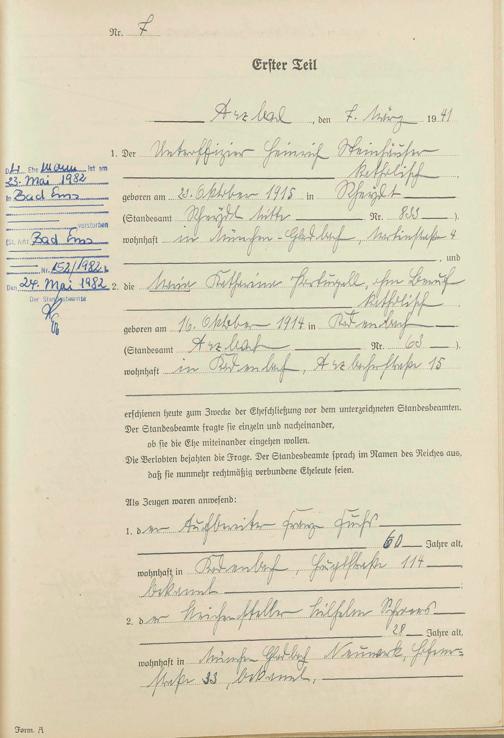 Nr. 7
Erster Teil
Arzbach, den 7. März 1941
1. Der Unteroffizier Heinrich Steinhäuser
katholisch
geboren am 23. Oktober 1915 in Rheydt
(Standesamt Rheydt Mitte Nr. 833).
wohnhaft in München-Gladbach, 4
, und
2. die Maria Katharina, ohne Beruf
katholisch
geboren am 16. Oktober 1914 in Kadenbach
(Standesamt Arzbach Nr. 63).
wohnhaft in Kadenbach, Arzbacherstraße 15
erschienen heute zum Zwecke der Eheschließung vor dem unterzeichneten Standesbeamten.
Der Standesbeamte fragte sie einzeln und nacheinander,
ob sie die Ehe miteinander eingehen wollen.
Die Verlobten bejahten die Frage. Der Standesbeamte sprach im Namen des Reiches aus,
daß sie nunmehr rechtmäßig verbundene Eheleute seien.
Als Zeugen waren anwesend:
1. der Franz Fuchs
60 Jahre alt,
wohnhaft in Kadenbach, Hauptstraße 114
bekannt
2. der Weichensteller Wilhelm
28 Jahre alt,
wohnhaft in München Gladbach Neuwerk,
straße 33, bekannt.
Der Ehemann ist am
23. Mai 1982
in Bad Ems
verstorben
(St. Amt Bad Ems
Nr. 152/1982).
Den 24. Mai 1982
Der Standesbeamte
Form. A